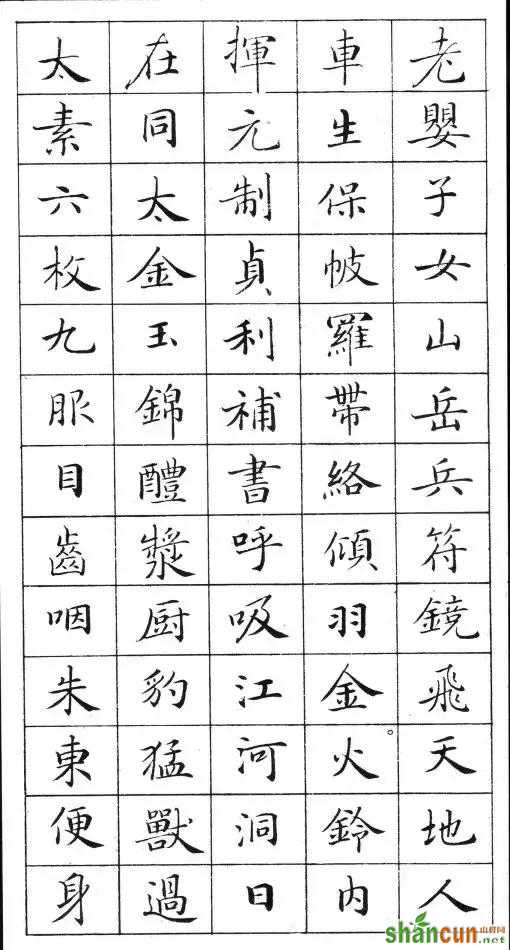 老嬰子女山岳兵符鏡飛天地人
車生保帔羅帶絡傾羽金火。鈴內
揮元制貞利補書呼吸江河洞日
在同太金玉錦醴漿厨豹猛獸過
太素六枚九服目齒咽朱東便身
shancun
山村网
.net